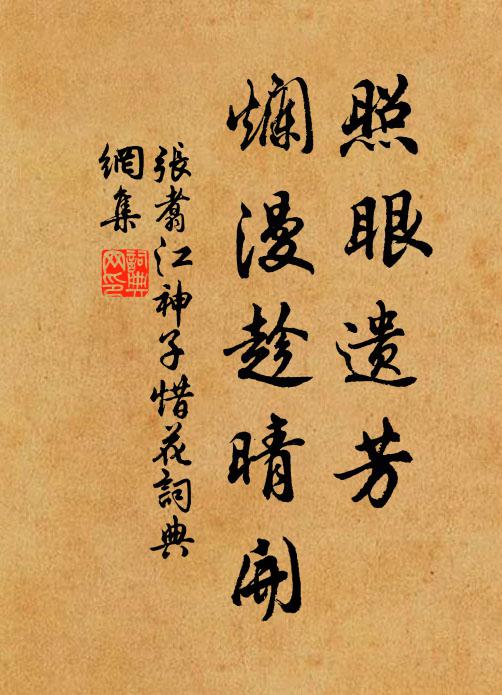 照眼遗芳
爛漫趁晴開
張翥江神子惜花詞典
網集
詞典
网印